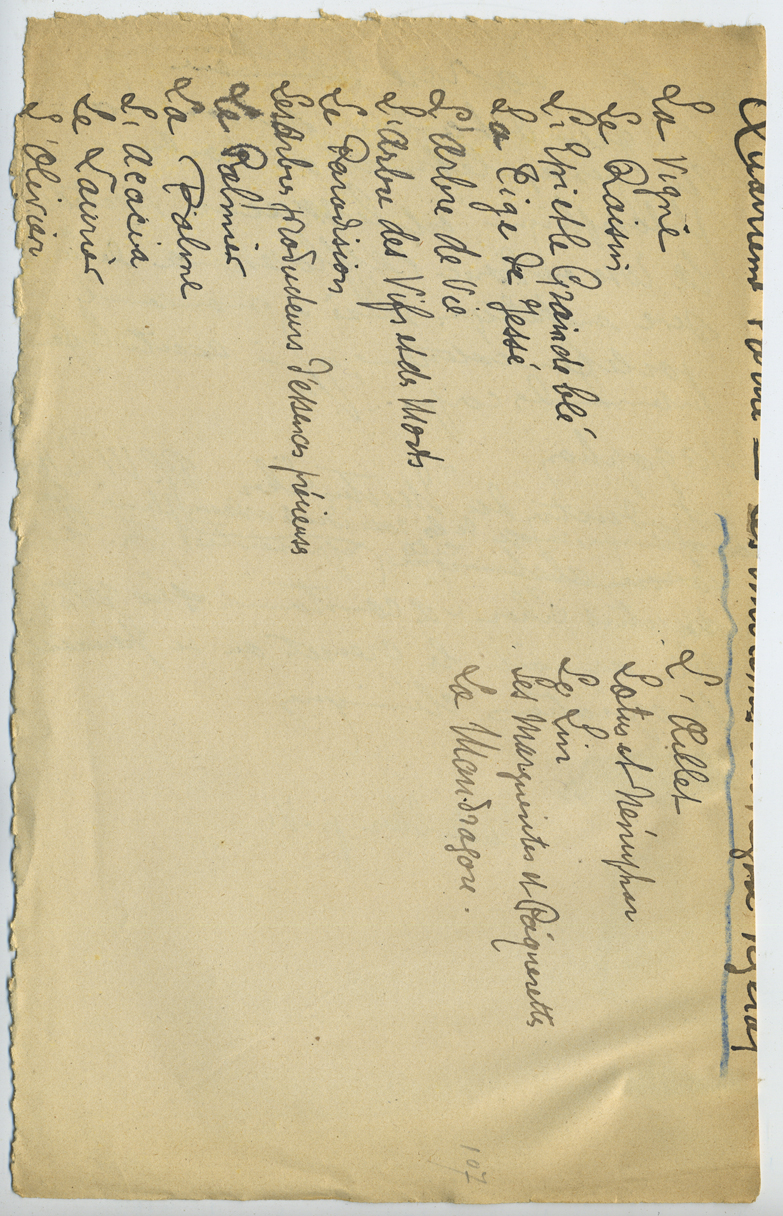 La Vigne
Le Raisin
L'Epi et le Grain de blé
La Tige de Jessé
L'Arbre de Vie
L'Arbre des Vifs et des Morts
Le Paradision
Les Arbres producteurs d'essences précieuses
Le Palmier
La Palme
L'Acacia
Le Laurier
L'Olivier
L'Œillet
Lotus et Nénuphar
Le Lin
Les Marguerites et Pâquerettes
La Mandragore.
107